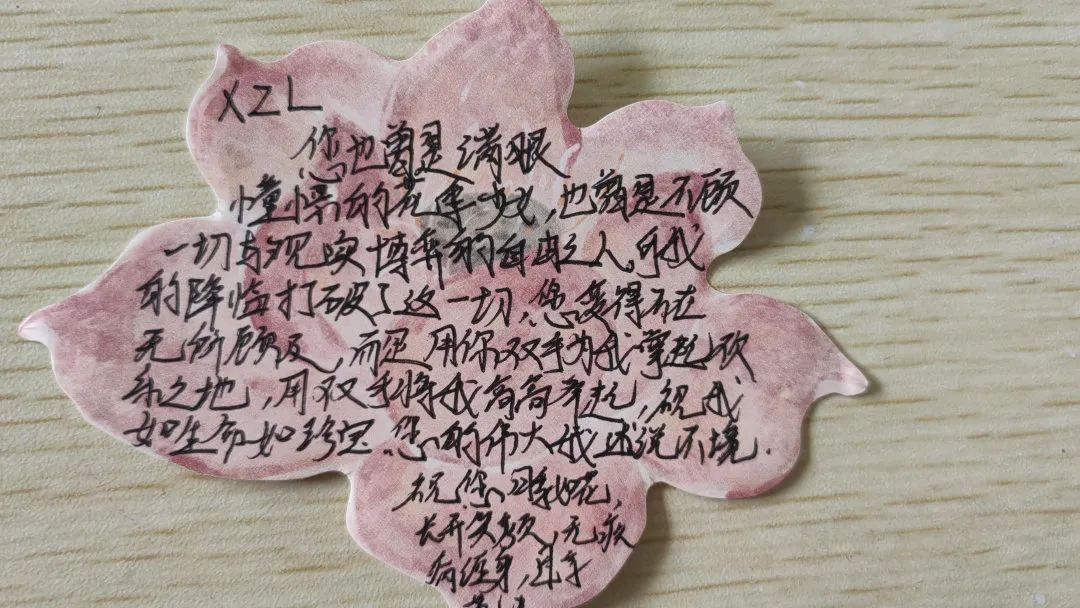 XZL
您也曾是满眼
憧憬的花季少女，也曾是不顾
一切与现实博弈的自由之人。可我
的降临打破了这一切。您变得不在
无所顾及，而是用你双手为我掌起欢
乐之地，用双手将我高高举起，视我
如生命如珍宝。您的伟大我述说不境.
祝您，四季如花，
长开笑颜，无疾
病缠身，